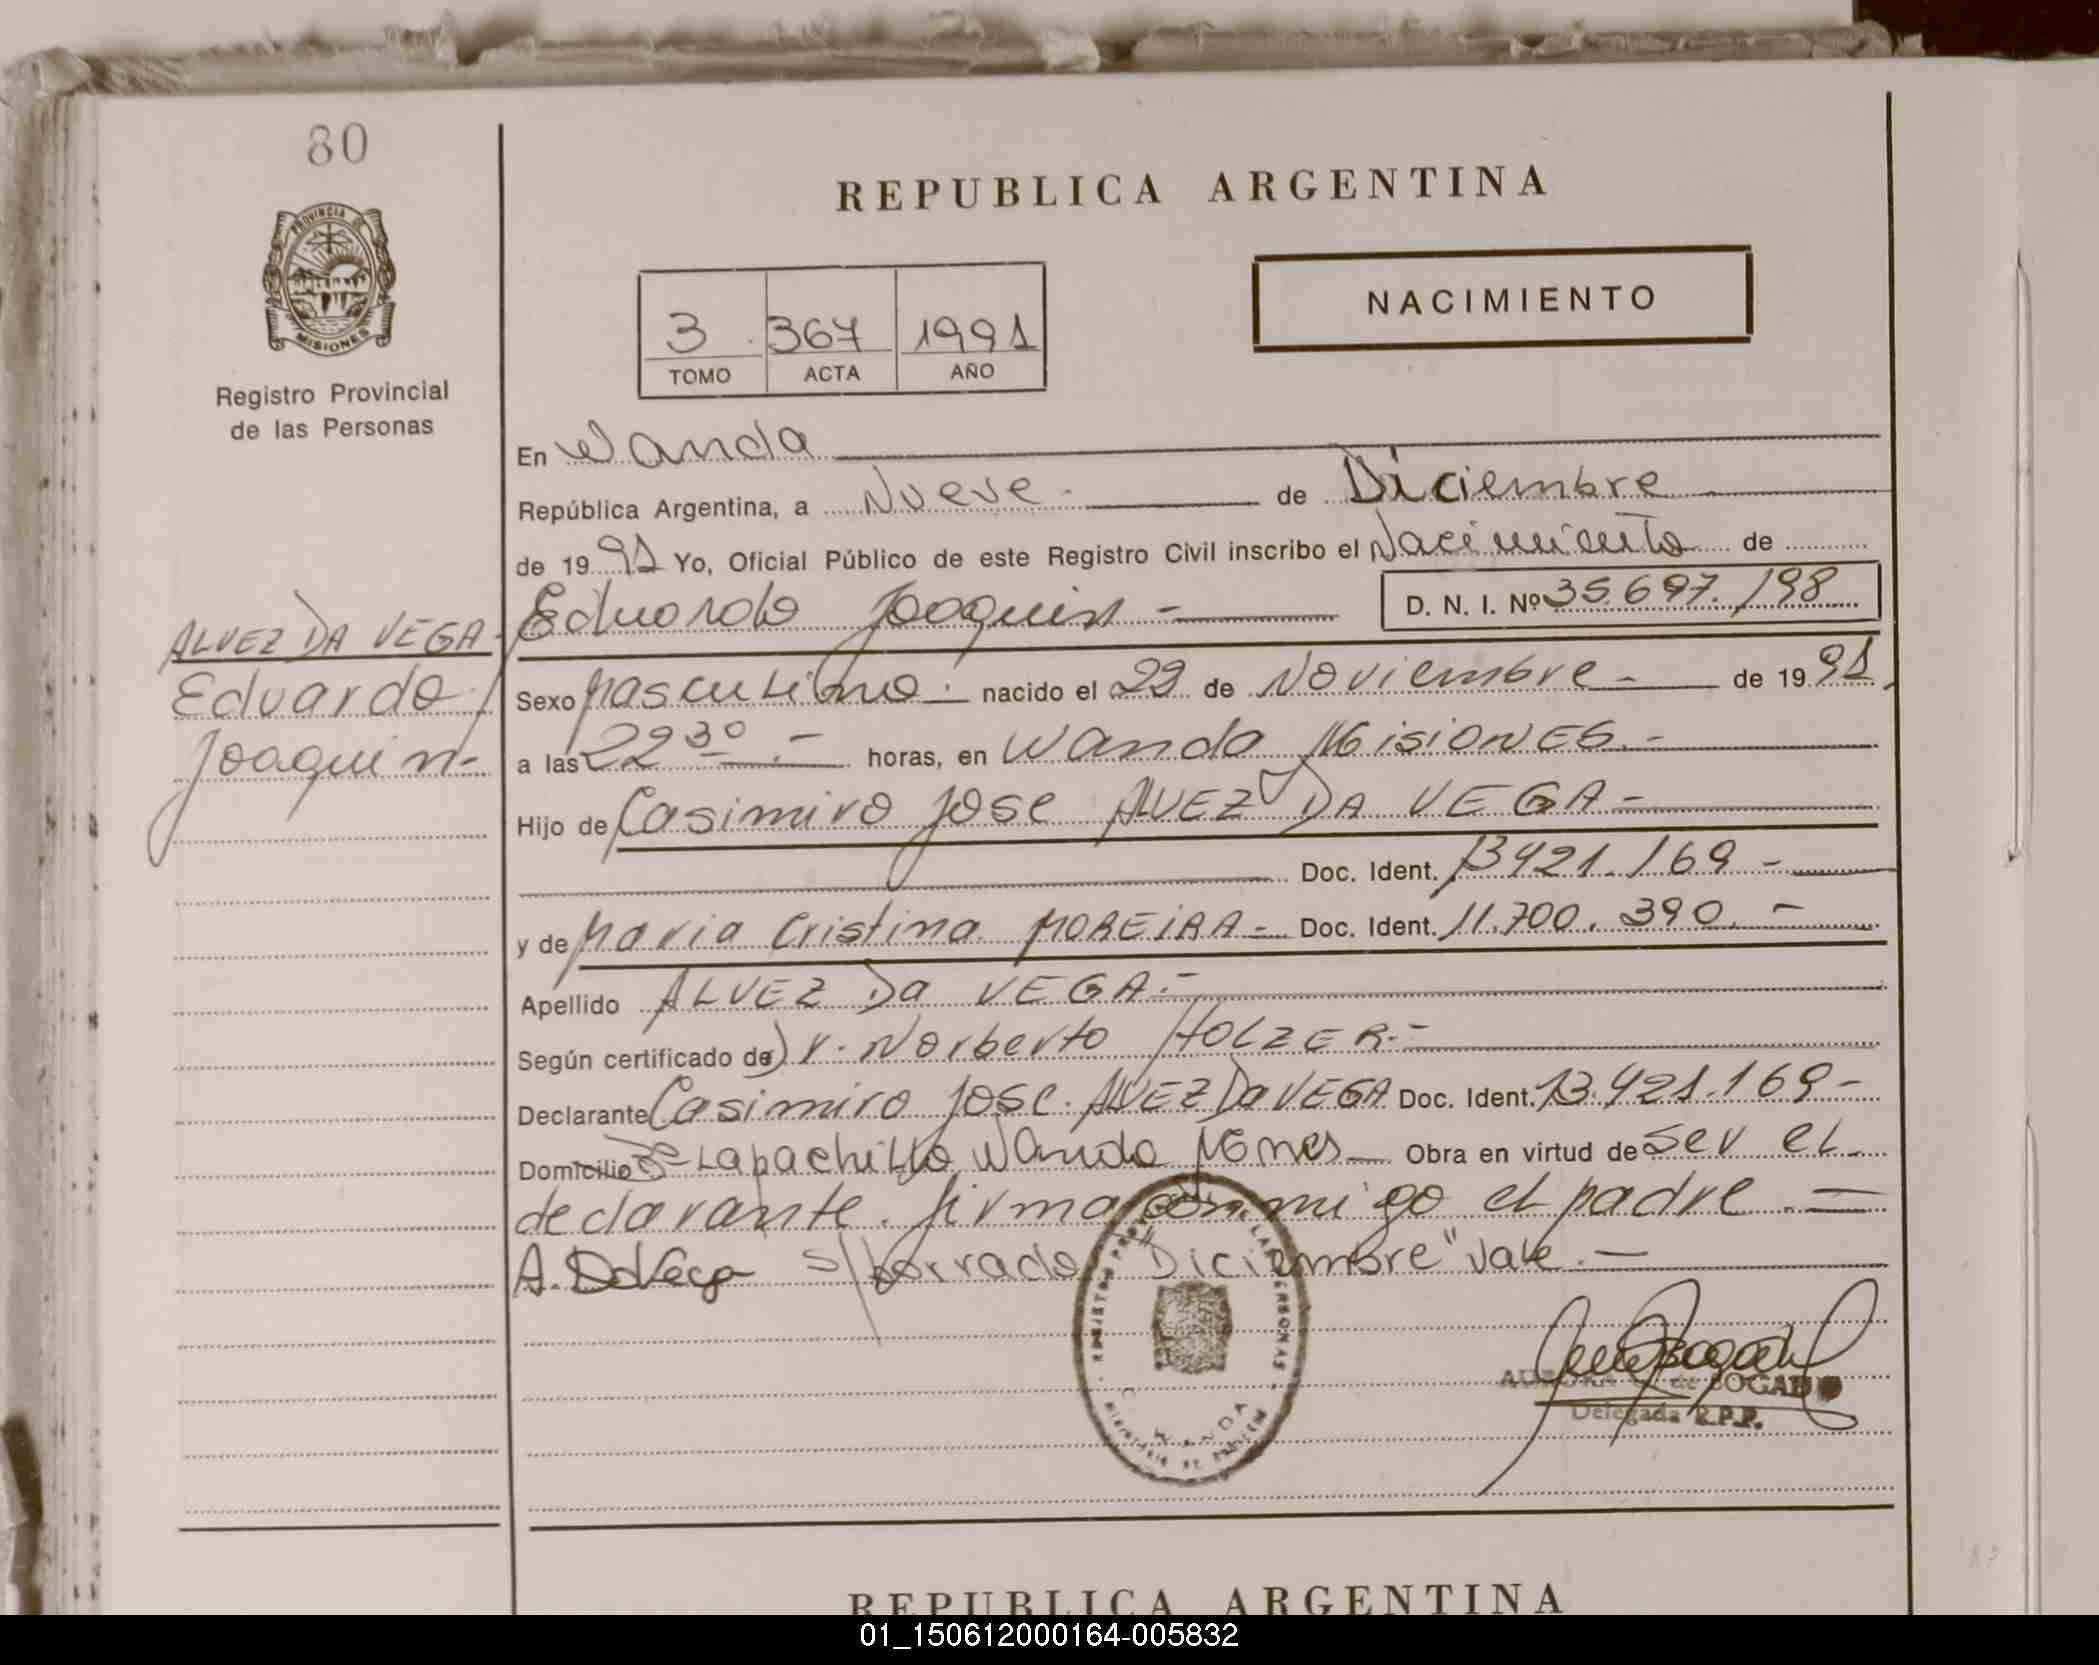 80
PROVINCIA DE
MISIONES
Registro Provincial
de las Personas
REPUBLICA ARGENTINA
NACIMIENTO
3 367 1991
TOMO ACTA AÑO
En Wanda
República Argentina, a Nueve.- de Diciembre
de 1991 Yo, Oficial Público de este Registro Civil inscribo el Nacimiento de
Eduardo Joaquin - D. N. I. Nº 35.697.198
ALVEZ DA VEGA-
Eduardo
Joaquin-
Sexo Masculino.- nacido el 29 de Noviembre - de 1991.
a las 22 30 .- horas, en Wanda Misiones.-
Hijo de Casimiro Jose ALVEZ DA VEGA-
Doc. Ident. 13421.169-
y de Maria Cristina MOREIRA- Doc. Ident. 11.700.390.-
Apellido ALVEZ Da VEGA.-
Según certificado de Dr. Norberto HOLZER.-
Declarante Casimiro Jose. ALVEZ Da VEGA Doc. Ident. 13.421.169-
Domicilio Bº Lapachillo Wanda Mnes- Obra en virtud de Ser el
declarante. firma conmigo el padre.=
A. DaVega S/borrado "Diciembre" vale.-
REGISTRO PROV. DE LAS PERSONAS
WANDA
MINISTERIO DE GOBIERNO
AURORA de BOGADO
Delegada R.P.P.
REPUBLICA ARGENTINA
01_150612000164-005832